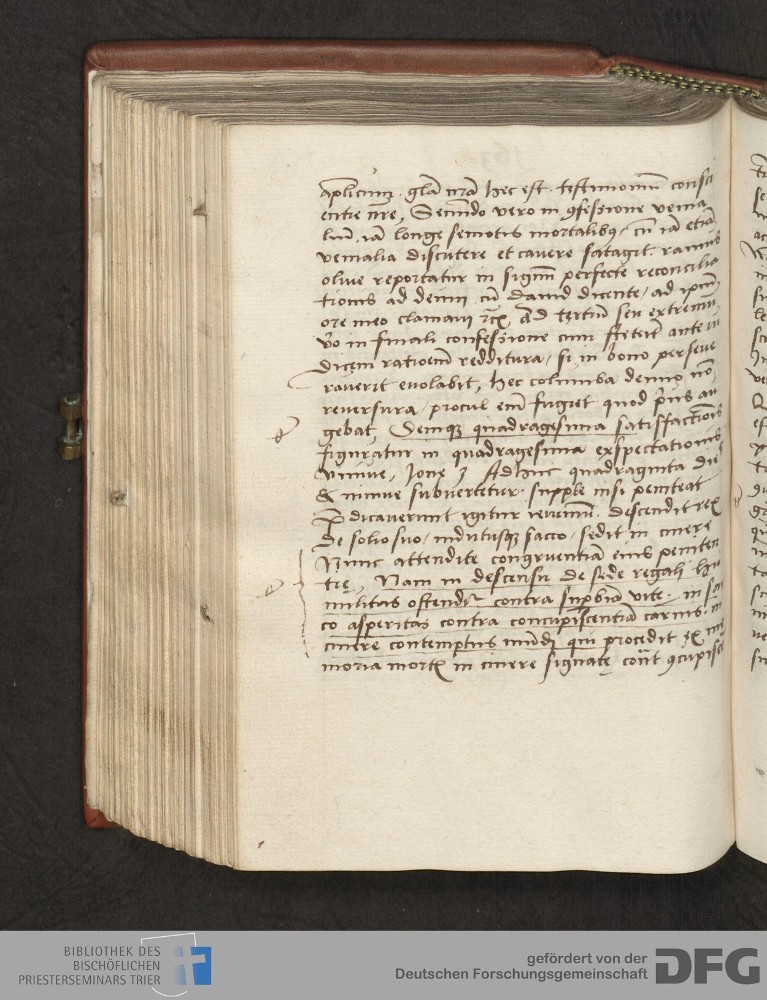 aplicum . glā nrā hec est . testimoniū consci
entie nre, Secundo vero in ɔfessione venia
liū . iā longe semotis mortalibꝫ, cū iā etiā
venialia discutere et cavere satagit . ramus
olive reportatur in signū perfecte reconcilia
tionis ad deum cū david dicente / ad ipsum
ore meo clamavi rc̄. Ad tertiū seu extremū
v̄o in finali confessione cum steterit ante iu
dicem rationem redditura / si in bono perseve
raverit evolabit, hec columba demū nō
reversura / procul em̄ fugiet quod prius au
gebat, Deniqꝫ quadragesima satisfactiōis
figuratur in quadragesima exspectationis
Ninive, Jone 3 Adhuc quadraginta dies
& ninive subvertetur . supple nisi peniteat
Predicaverunt igitur ieiuniū . descendit rex
de solio suo / indutusqꝫ sacco / sedit in cinere
Nunc attendite congruentiā eius peniten
tie, Nam in descensu de sede regali hu
militas ostenditur contra supbiā vite . in sac
co asperitas contra concupiscentiā carnis . in
cinere contemptus mūdi qui procedit ex me
moria mortis in cinere signate cont ɔcupisce
BIBLIOTHEK DES
BISCHÖFLICHEN
PRIESTERSEMINARS TRIER
gefördert von der
Deutschen Forschungsgemeinschaft
DFG